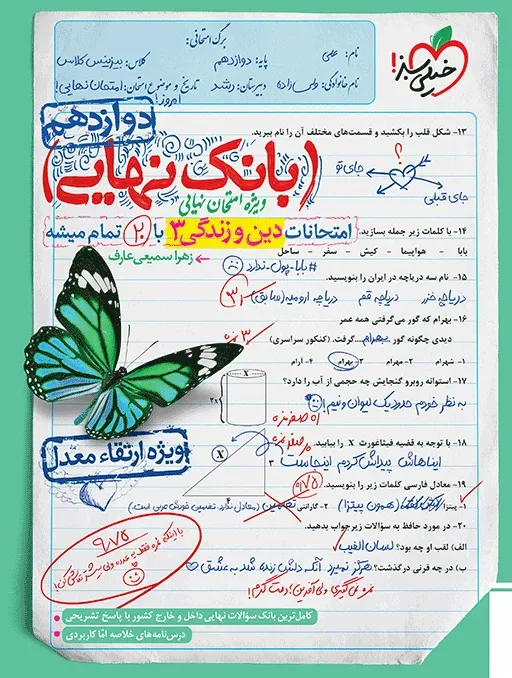 برگ امتحانی:
نام: علی
پایه: دوازدهم
کلاس: بیزینس کلاس
نام خانوادگی: ولی زاده
دبیرستان: رشد
تاریخ و موضوع امتحان: امتحان نهایی!
امروز!
خیلی سبز!
دوازدهم
بانک نهایی
ویژه امتحان نهایی
امتحانات دین و زندگی ۳ با ۲۰ تمام میشه
زهرا سمیعی عارف
۱۳- شکل قلب را بکشید و قسمت‌های مختلف آن را نام ببرید.
؟
جای تو
جای قبلی
۱۴- با کلمات زیر جمله بسازید.
بابا - هواپیما - کیش - سفر - ساحل
#بابا-پول-ندارد
۱۵- نام سه دریاچه در ایران را بنویسید.
دریاچه خزر دریاچه قم دریاچه ارومیه (سابق)
۱۶- بهرام که گور می‌گرفتی همه عمر
دیدی چگونه گور بهرام گرفت. (کنکور سراسری)
۱- شهرام ۲- مهرام ۳- بهرام ۴- آرام
۱۷- استوانه روبرو گنجایش چه حجمی از آب را دارد؟
به نظر خودم حدود یک لیوان و نیم!
X
۲X
۱۸- با توجه به قضیه فیثاغورث X را بیابید.
ایناهاش پیداش کردم اینجاست
X
۳
۴
۱۹- معادل فارسی کلمات زیر را بنویسید.
۰/۷۵
۱- پیتزا (همون پیتزا) ۲- گارانتی تضمین (معادل ندارد. تضمین خودش عربی است.)
۲۰- در مورد حافظ به سؤالات زیر جواب بدهید.
الف) لقب او چه بود؟ لسان الغیب
ب) در چه قرنی درگذشت؟ هرگز نمیرد آنکه دلش زنده شد به عشق
نمره نمی‌گیری ولی آفرین! دمت گرم!
۹/۷۵
ویژه ارتقاء معدل
کامل‌ترین بانک سؤالات نهایی داخل و خارج کشور با پاسخ تشریحی
درس‌نامه‌های خلاصه اما کاربردی